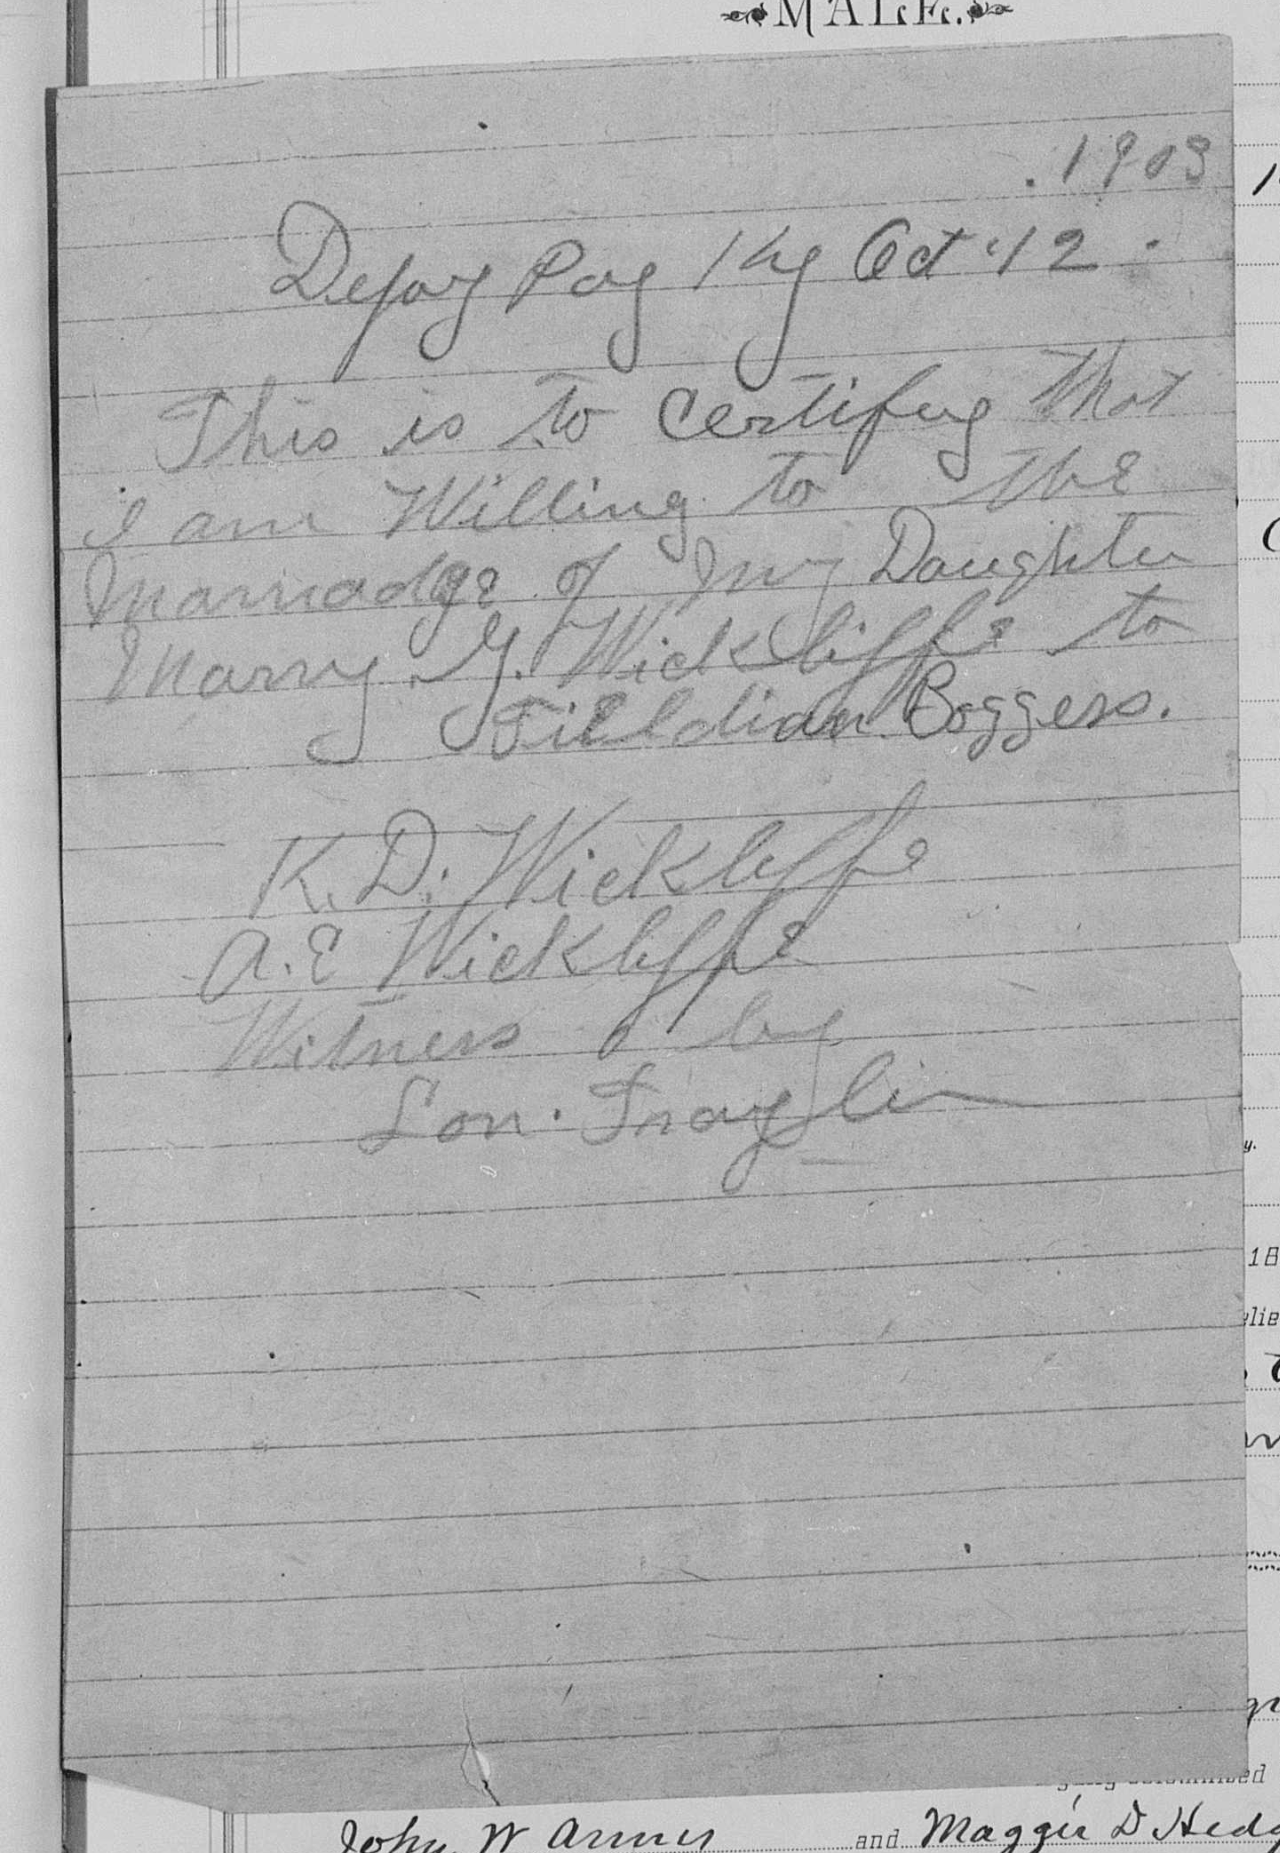 MALE.
. 1903
Defoy Poy Ky Oct 12 .
This is to Certifuy That
I am Willing to the
Marriadge of My Daughter
Marry G. Wickliffe to
Filldian Boggess.
K. D. Wickliffe
A. E Wickliffe
Witness by
Lon. Traylin
y.
18
John W Armes and Maggie D Hedg